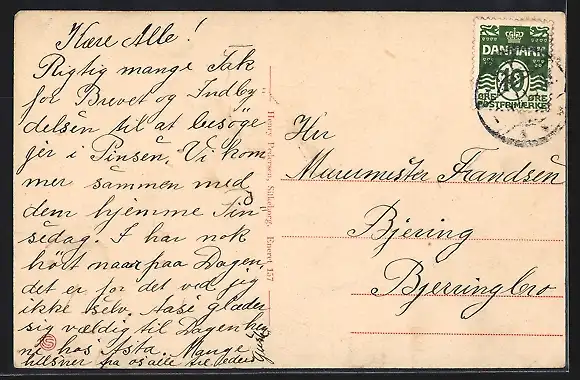 Kære Alle!
Rigtig mange Tak
for Brevet og Indby
delsen til at besøge
jer i Pinsen, Vi kom
mer sammen med
dem hjemme Pin
sedag. I har nok
hørt naar paa Dagen,
det er for det ved jeg
ikke selv. Aase glæder
sig vældig til Dagen hen
ne hos Ysta. Mange
hilsner fra os alle til eder
Henry Petersen, Silkeborg. Eneret 157
DANMARK
10
ØRE ØRE
POSTFRIMÆRKE
Hr
Murermester Frandsen
Bjering
Bjerringbro